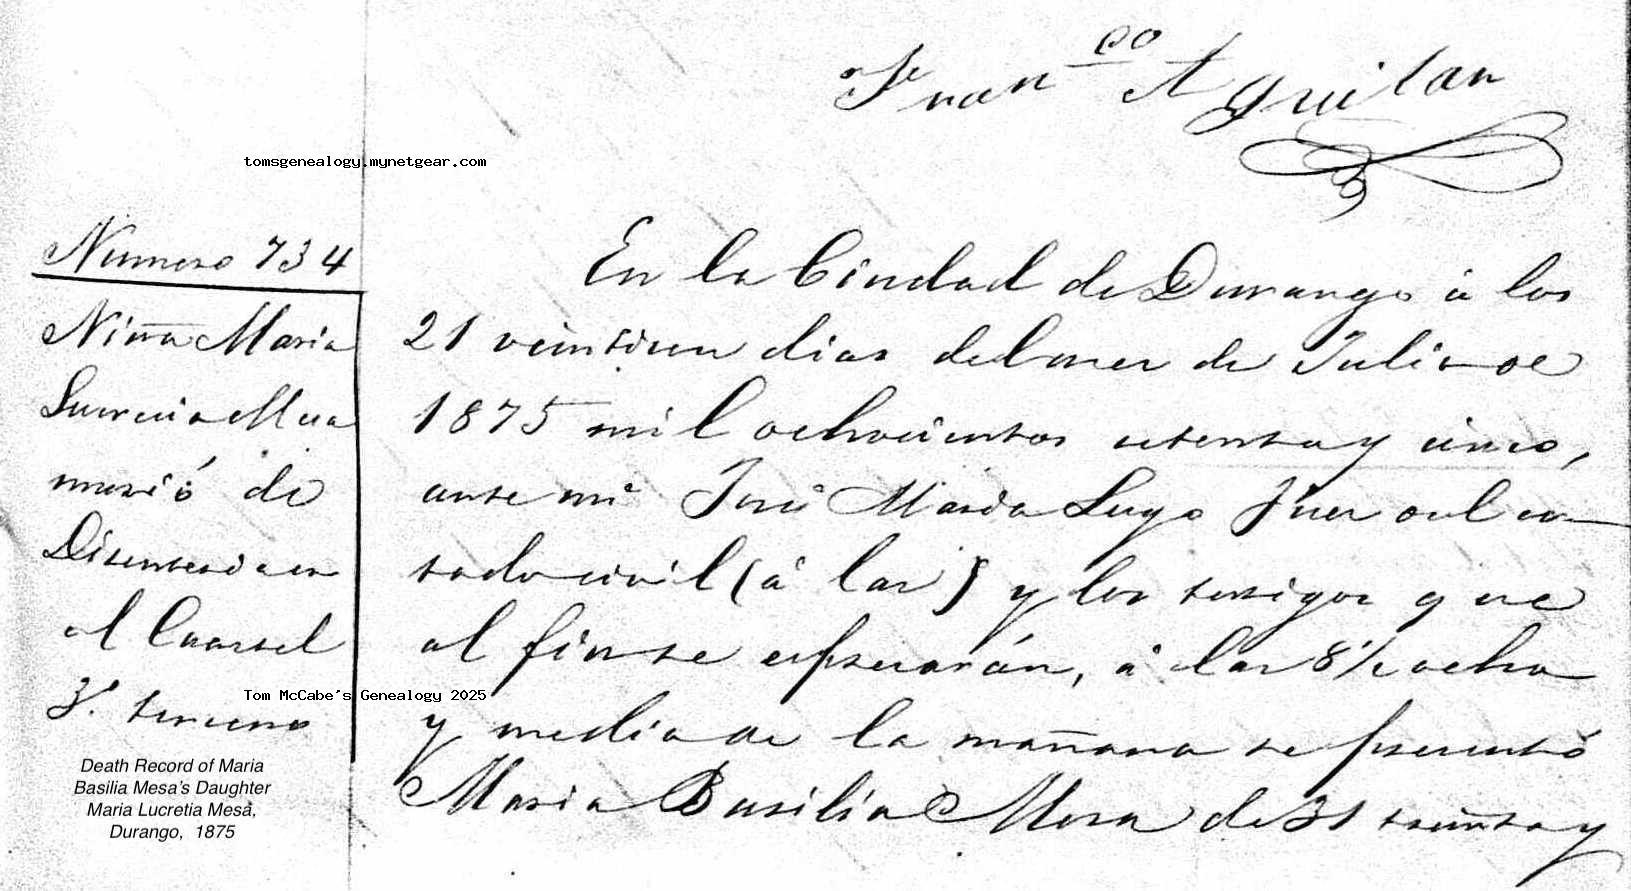 Fran.co Aguilar
tomsgenealogy.mynetgear.com
Numero 734
Niña Maria
Lucrecia Mesa
murió de
Disenteria en
el Cuartel
3º tercero
Tom McCabe's Genealogy 2025
Death Record of Maria
Basilia Mesa's Daughter
Maria Lucretia Mesa,
Durango, 1875
En la Ciudad de Durango á los
21 veintiun dias del mes de Julio de
1875 mil ochocientos setenta y cinco,
ante mi José Maria Lugo Juez del es-
tado civil (á las) y los testigos que
al fin se espresarán, á las 8½ ocho
y media de la mañana se presentó
Maria Basilia Mesa de 31 treinta y